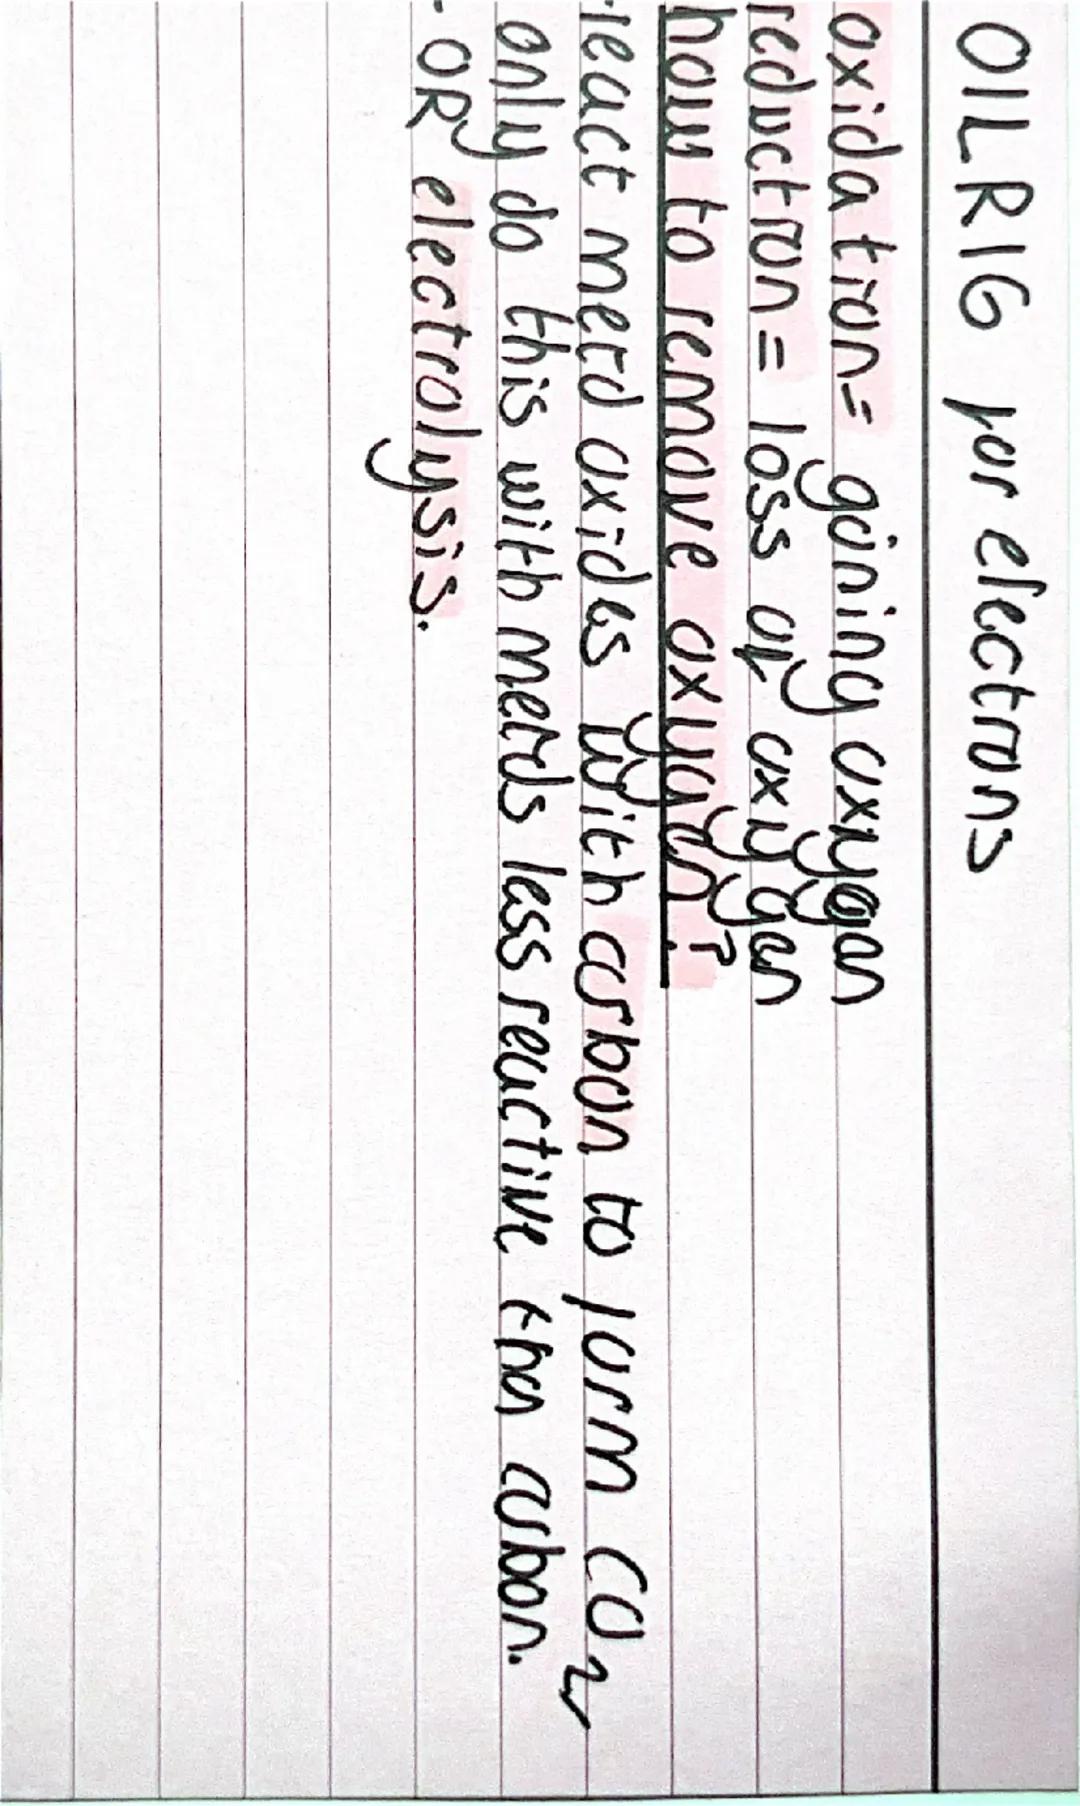 OILRIG for electrons
oxidation = gaining oxygen
reduction = loss of oxygen
how to remove oxygen?
-react metal oxides with carbon to form CO2
only do this with metals less reactive than carbon.
- OR electrolysis.